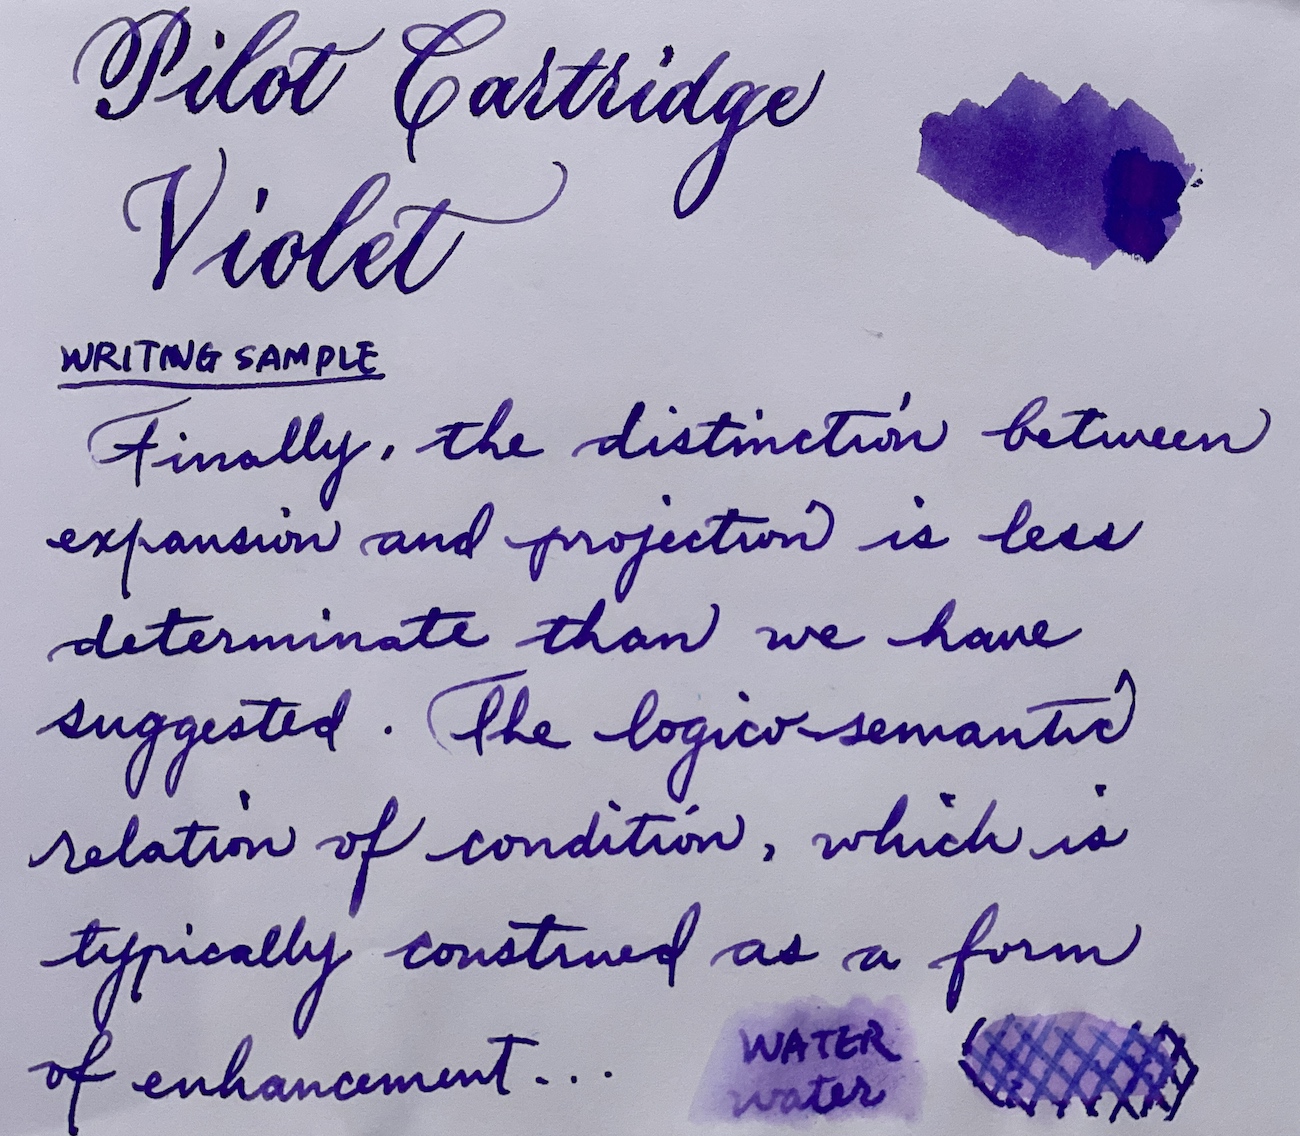 Pilot Cartridge
Violet
WRITING SAMPLE
Finally, the distinction between
expansion and projection is less
determinate than we have
suggested. The logico-semantic
relation of condition, which is
typically construed as a form
of enhancement...
WATER
water